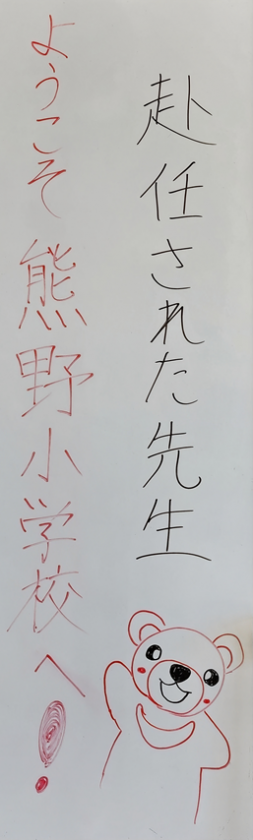 赴任された先生
ようこそ熊野小学校へ!